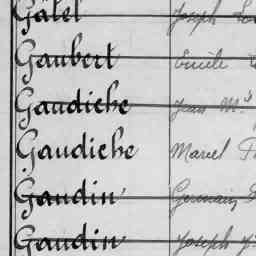 Gatel Joseph
Gaubert Emile
Gaudiche Jean M.
Gaudiche Marcel
Gaudin Germain
Gaudin Joseph